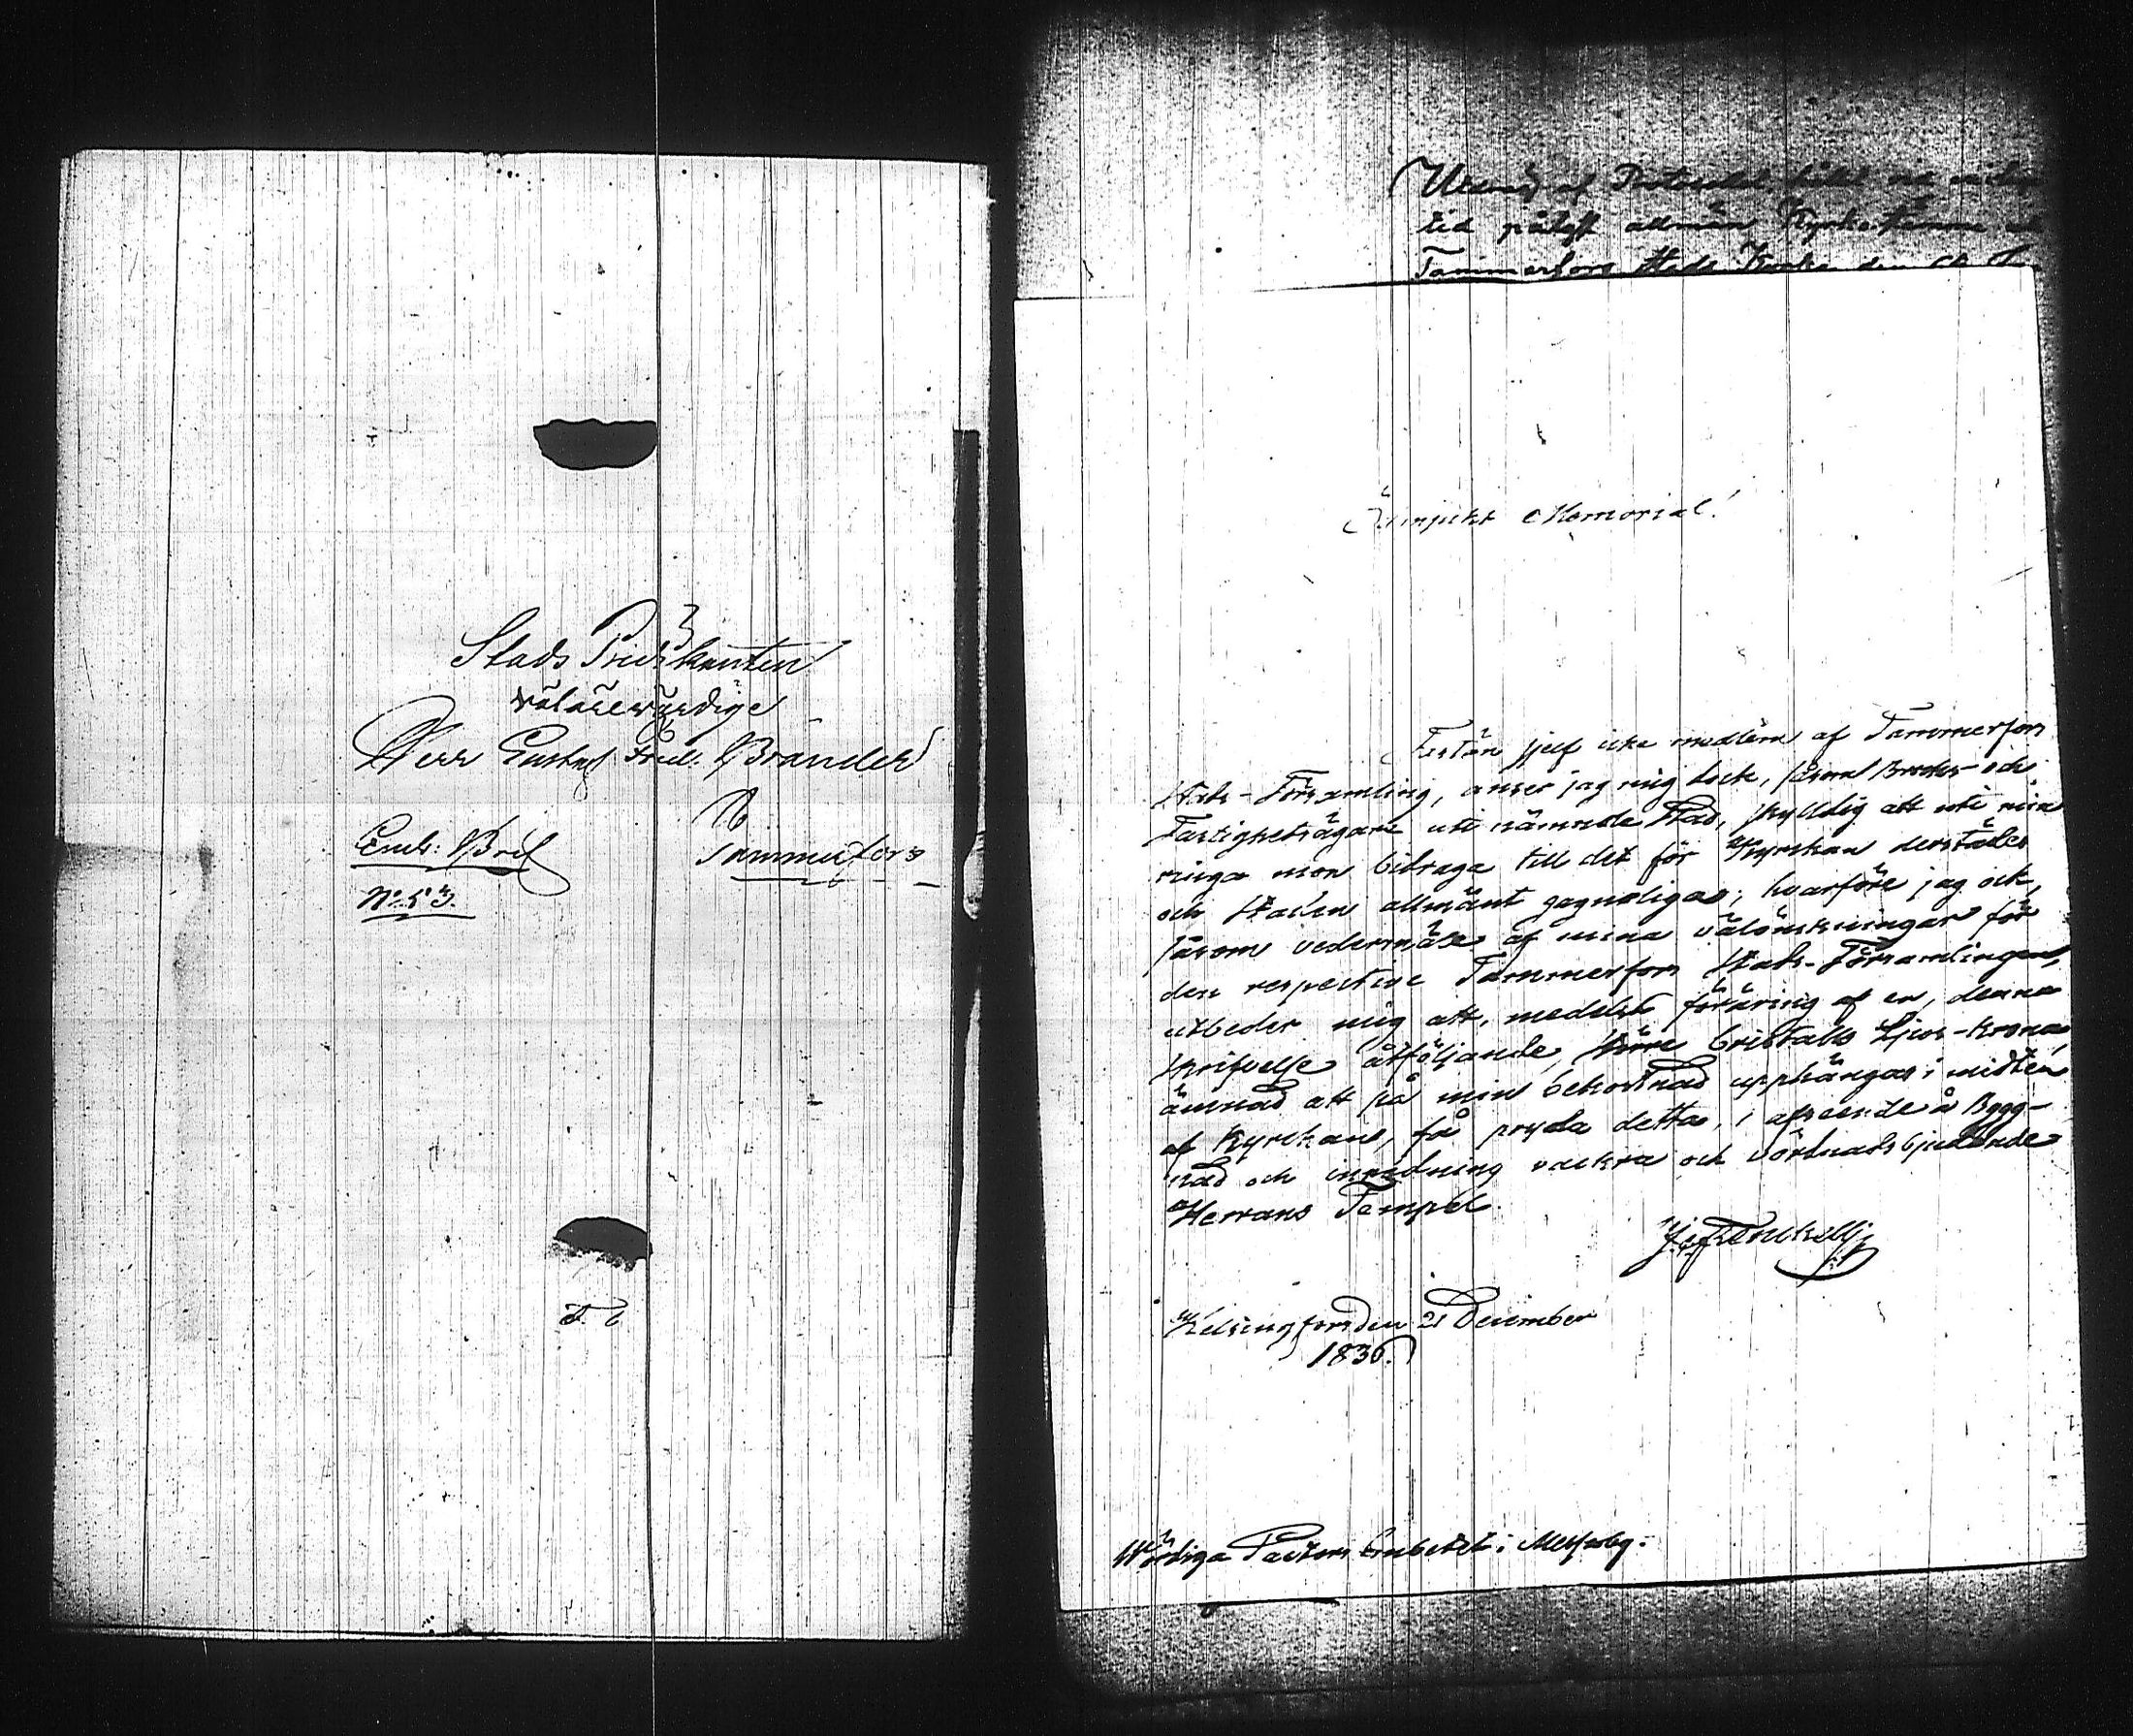 Stads Predikanten
välärevördige
Herr Gustaf Fred. Brander
Emb: Bref
Tammerfors
N:o 53.
Utdrag af Protocollet hållet vid
tid pålyst allmän Kyrkostämma
Tammerfors Stads Kyrka den
Ödmjukt Memorial!
Ehuru sjelf icke medlem af Tammerfors
Stads-Församling, anser jag mig dock, såsom Bruks- och
Fastighetsägare uti nämnde Stad, skyldig att uti min
ringa mon bidraga till det för Kyrkan derstädes
och Staden allmänt gagneliga; hvarföre jag ock,
såsom vedermäle af mina välönskningar för
den respective Tammerfors Stads-Församlingen,
utbeder mig att, medelst föräring af en, denna
skrifvelse åtföljande, större Cristalls Ljus-Krona
ämnad att på min bekostnad upphängas i midten
af Kyrckan, få pryda detta, i afseende å Bygg-
nad och inredning vackra och vördnadsbjudande
Herrans Tempel.
Helsingfors den 21 December
1836.
Wördiga Pastors Embetet i Messuby.